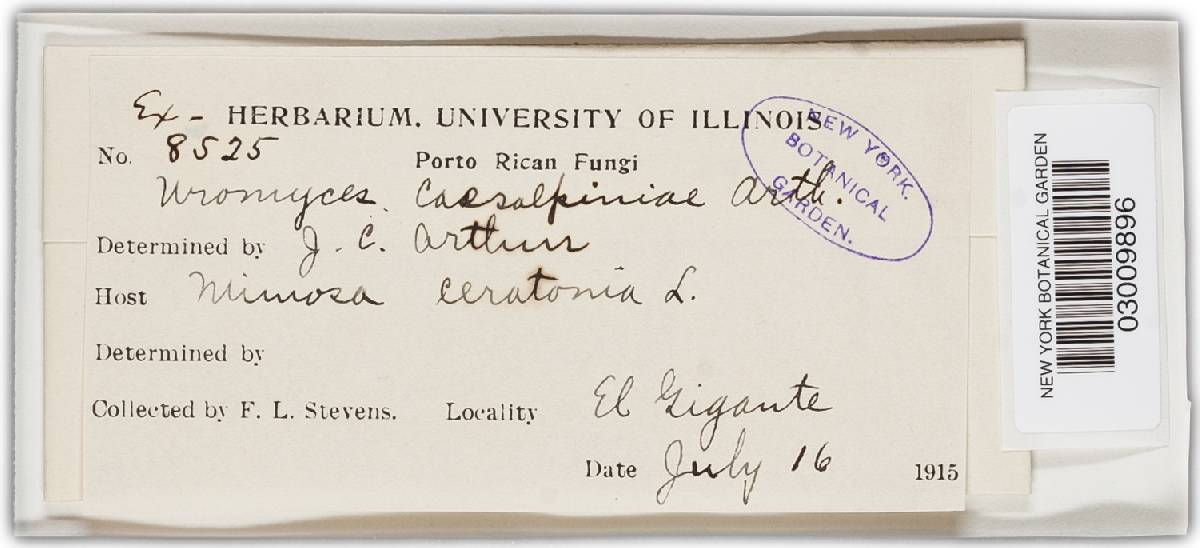 Ex - HERBARIUM. UNIVERSITY OF ILLINOIS
No. 8525
Porto Rican Fungi
Uromyces Caesalpiniae Arth.
Determined by J. C. Arthur
Host Mimosa ceratonia L.
Determined by
Collected by F. L. Stevens. Locality El Gigante
Date July 16 1915
NEW YORK
BOTANICAL
GARDEN.
NEW YORK BOTANICAL GARDEN
03009896